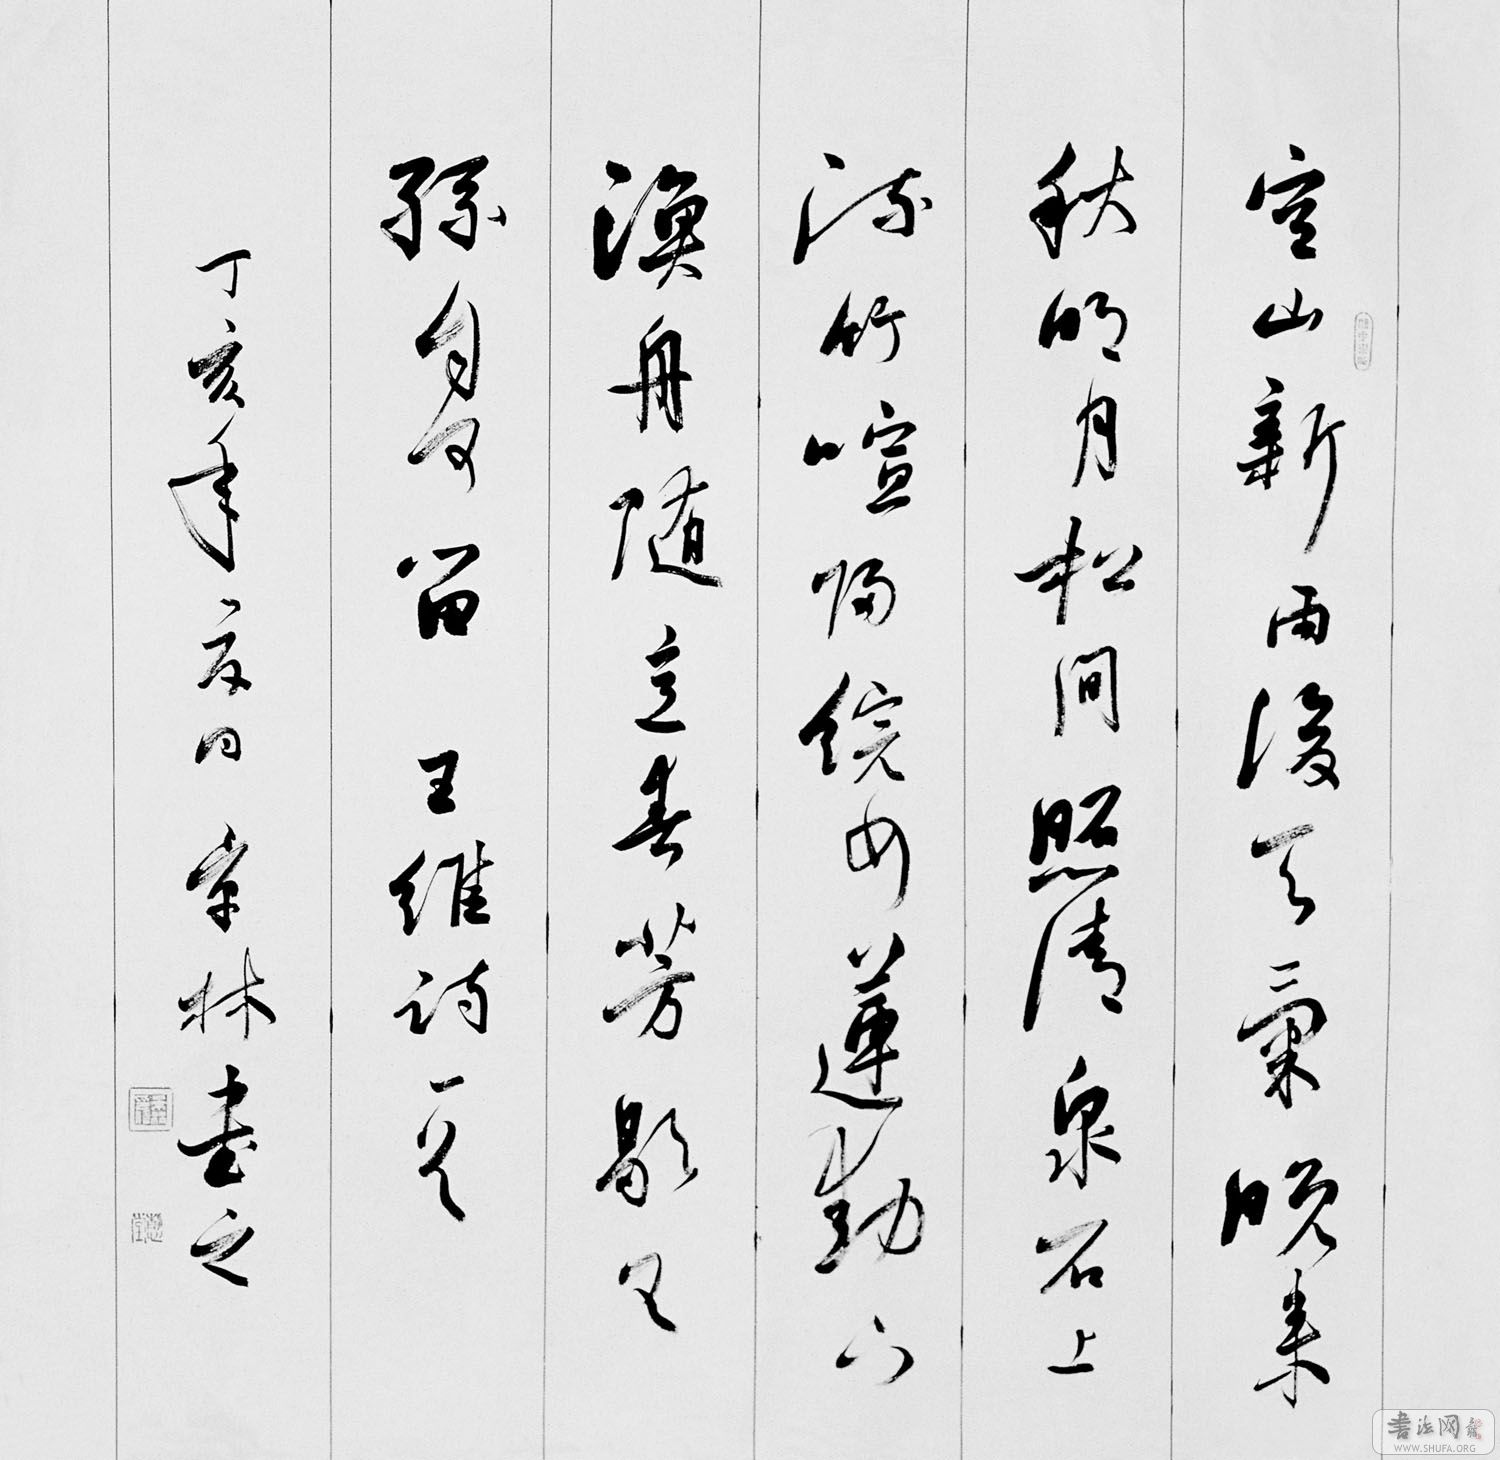 空山新雨後天氣晚来
秋明月松間照清泉石上
流竹喧歸浣女蓮動下
漁舟随意春芳歇王
孫自可留 王維詩一首
丁亥年夏日 林書之
书法网
WWW.SHUFA.ORG